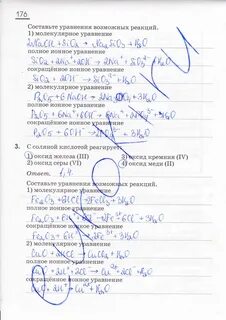 176
Составьте уравнения возможных реакций.
1) молекулярное уравнение
2NaOH + SiO₂ → Na₂SiO₃ + H₂O
полное ионное уравнение
SiO₂ + 2Na⁺ + 2OH⁻ → 2Na⁺ + SiO₃²⁻ + H₂O
сокращённое ионное уравнение
SiO₂ + 2OH⁻ → SiO₃²⁻ + H₂O
2) молекулярное уравнение
P₂O₅ + 6NaOH → 2Na₃PO₄ + 3H₂O
полное ионное уравнение
P₂O₅ + 6Na⁺ + 6OH⁻ → 6Na⁺ + 2PO₄³⁻ + 3H₂O
сокращённое ионное уравнение
P₂O₅ + 6OH⁻ → 2PO₄³⁻ + 3H₂O
3. С соляной кислотой реагирует:
1) оксид железа (III) 3) оксид кремния (IV)
2) оксид серы (VI) 4) оксид меди (II)
Ответ. 1,4.
Составьте уравнения возможных реакций.
1) молекулярное уравнение
Fe₂O₃ + 6HCl → 2FeCl₃ + 3H₂O
полное ионное уравнение
сокращённое ионное уравнение
Fe₂O₃ + 6H⁺ → 2Fe³⁺ + 3H₂O
2) молекулярное уравнение
CuO + 2HCl → CuCl₂ + H₂O
полное ионное уравнение
CuO + 2H⁺ + 2Cl⁻ → Cu²⁺ + 2Cl⁻ + H₂O
сокращённое ионное уравнение
CuO + 2H⁺ → Cu²⁺ + H₂O